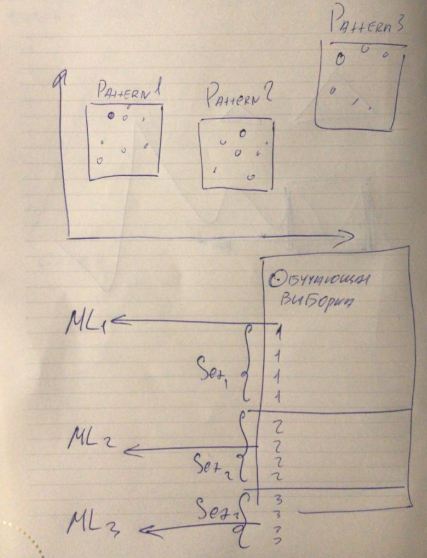 Pattern 3
Pattern 1
Pattern 2
Обучающая
выборка
ML1
1
1
Set1
1
1
2
ML2
2
Set2
2
2
3
Set3
3
ML3
3
3